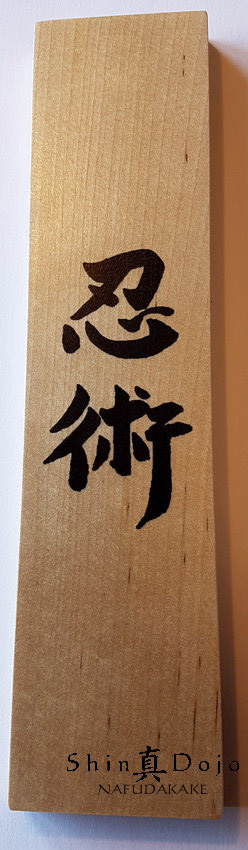 忍
術
Shin真Dojo
NAFUDAKAKE